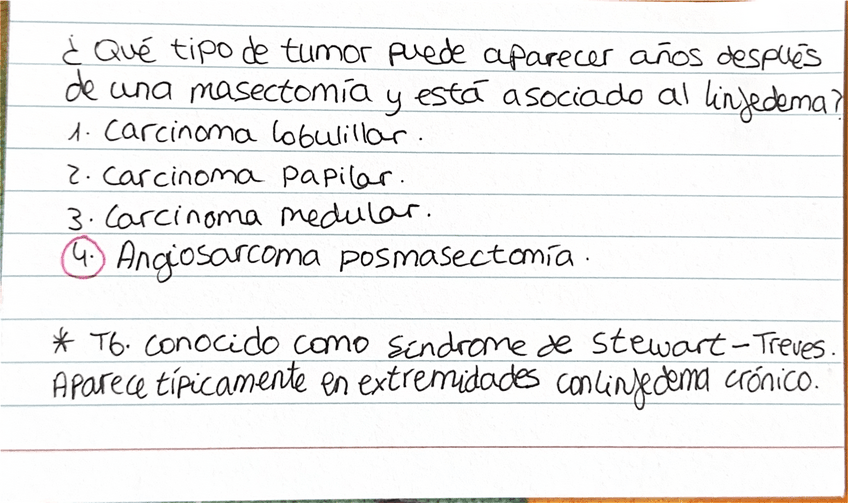 ¿ Qué tipo de tumor puede aparecer años después
de una masectomía y está asociado al linfedema?
1. Carcinoma lobulillar.
2. Carcinoma papilar.
3. Carcinoma medular.
4. Angiosarcoma posmasectomía.
* Tb. conocido como síndrome de Stewart-Treves.
Aparece típicamente en extremidades con linfedema crónico.